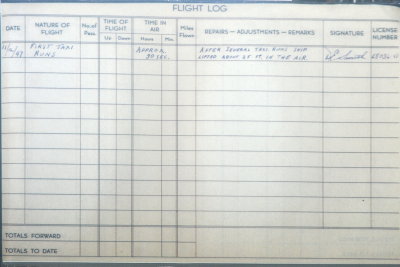 FLIGHT LOG
DATE
NATURE OF FLIGHT
No. of Pass.
TIME OF FLIGHT
Up Down
TIME IN AIR
Hours Min.
Miles Flown
REPAIRS — ADJUSTMENTS — REMARKS
SIGNATURE
LICENSE NUMBER
FIRST TAXI
RUNS
APPROX.
30 SEC.
AFTER SEVERAL TAXI RUNS SHIP
LIFTED ABOUT 25 FT. IN THE AIR.
TOTALS FORWARD
TOTALS TO DATE